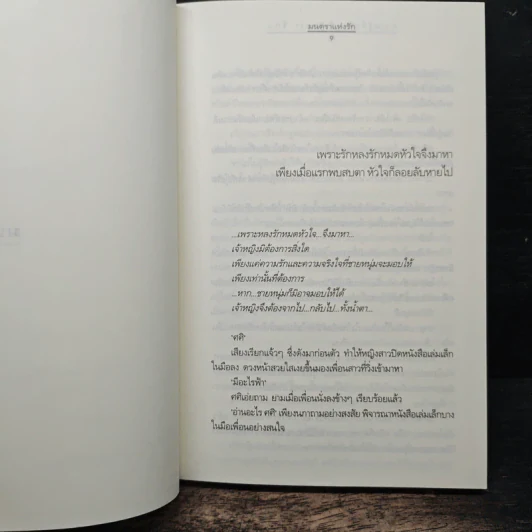 มนตราแห่งรัก
๙
เพราะรักหลงรักหมดหัวใจจึงมาหา
เพียงเมื่อแรกพบสบตา หัวใจก็ลอยลับหายไป
...เพราะหลงรักหมดหัวใจ...จึงมาหา...
เจ้าหญิงมิต้องการสิ่งใด
เพียงแค่ความรักและความจริงใจที่ชายหนุ่มจะมอบให้
เพียงเท่านั้นที่ต้องการ
...หาก...ชายหนุ่มก็มิอาจมอบให้ได้
เจ้าหญิงจึงต้องจากไป...กลับไป...ทั้งน้ำตา...
'ศศิ'
เสียงเรียกแจ้วๆ ซึ่งดังมาก่อนตัว ทำให้หญิงสาวปิดหนังสือเล่มเล็ก
ในมือลง ดวงหน้าสวยใสเงยขึ้นมองเพื่อนสาวที่วิ่งเข้ามาหา
'มีอะไรฟ้า'
ศศิเอ่ยถาม ยามเมื่อเพื่อนนั่งลงข้างๆ เรียบร้อยแล้ว
'อ่านอะไร ศศิ' เพียงนภาถามอย่างสงสัย พิจารณาหนังสือเล่มเล็กบาง
ในมือเพื่อนอย่างสนใจ